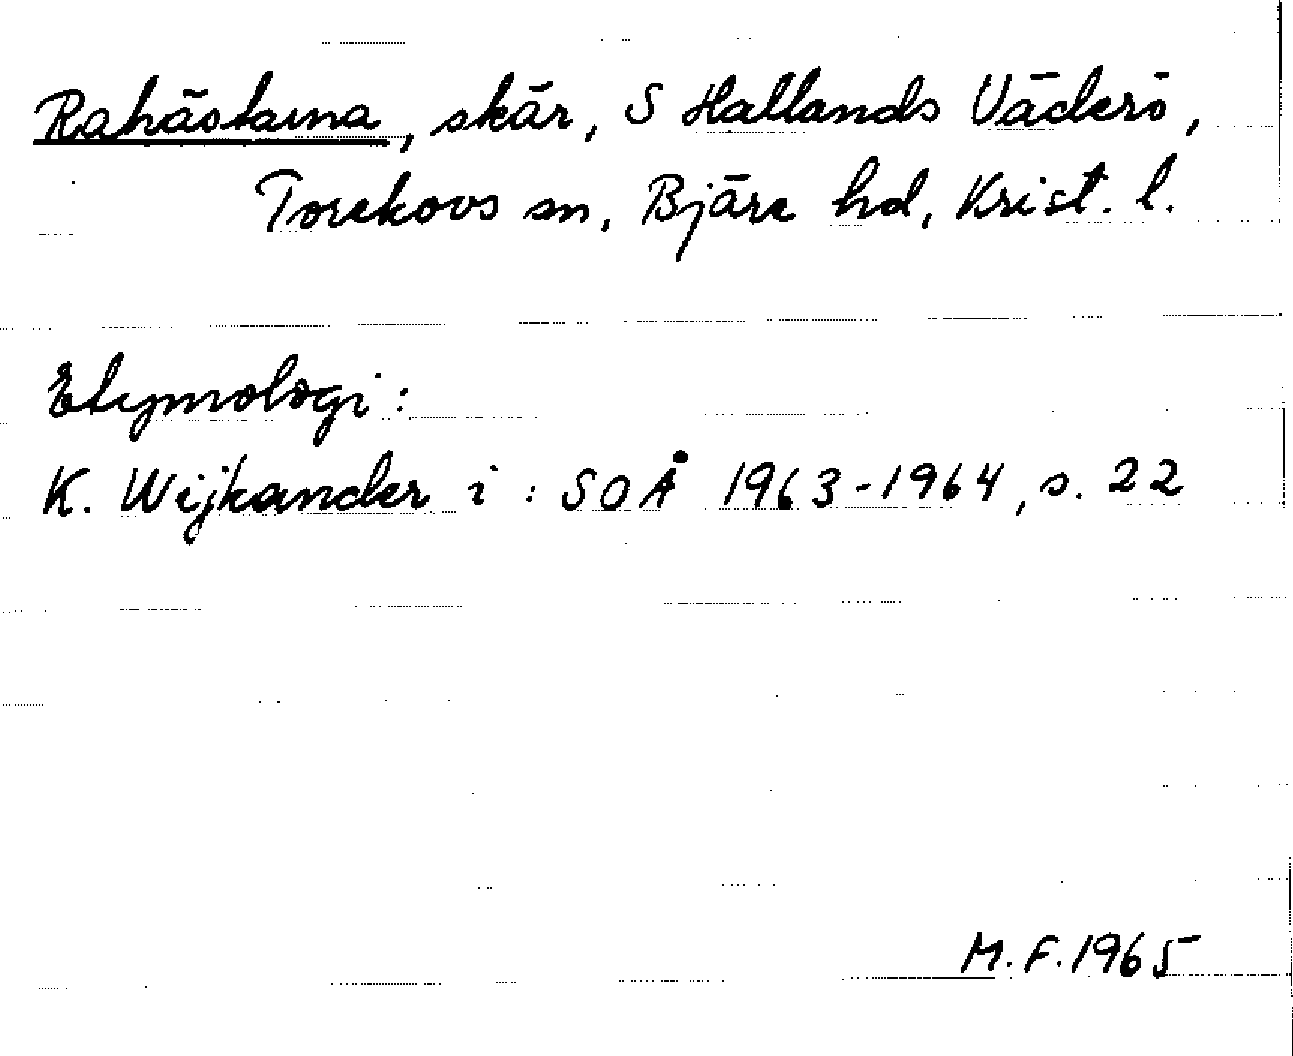 Rahästarna, skär, S Hallands Väderö,
Torekovs sn, Bjäre hd, Krist. l.
Etymologi:
K. Wijkander i: SOÅ 1963-1964, s. 22
M.F.1965